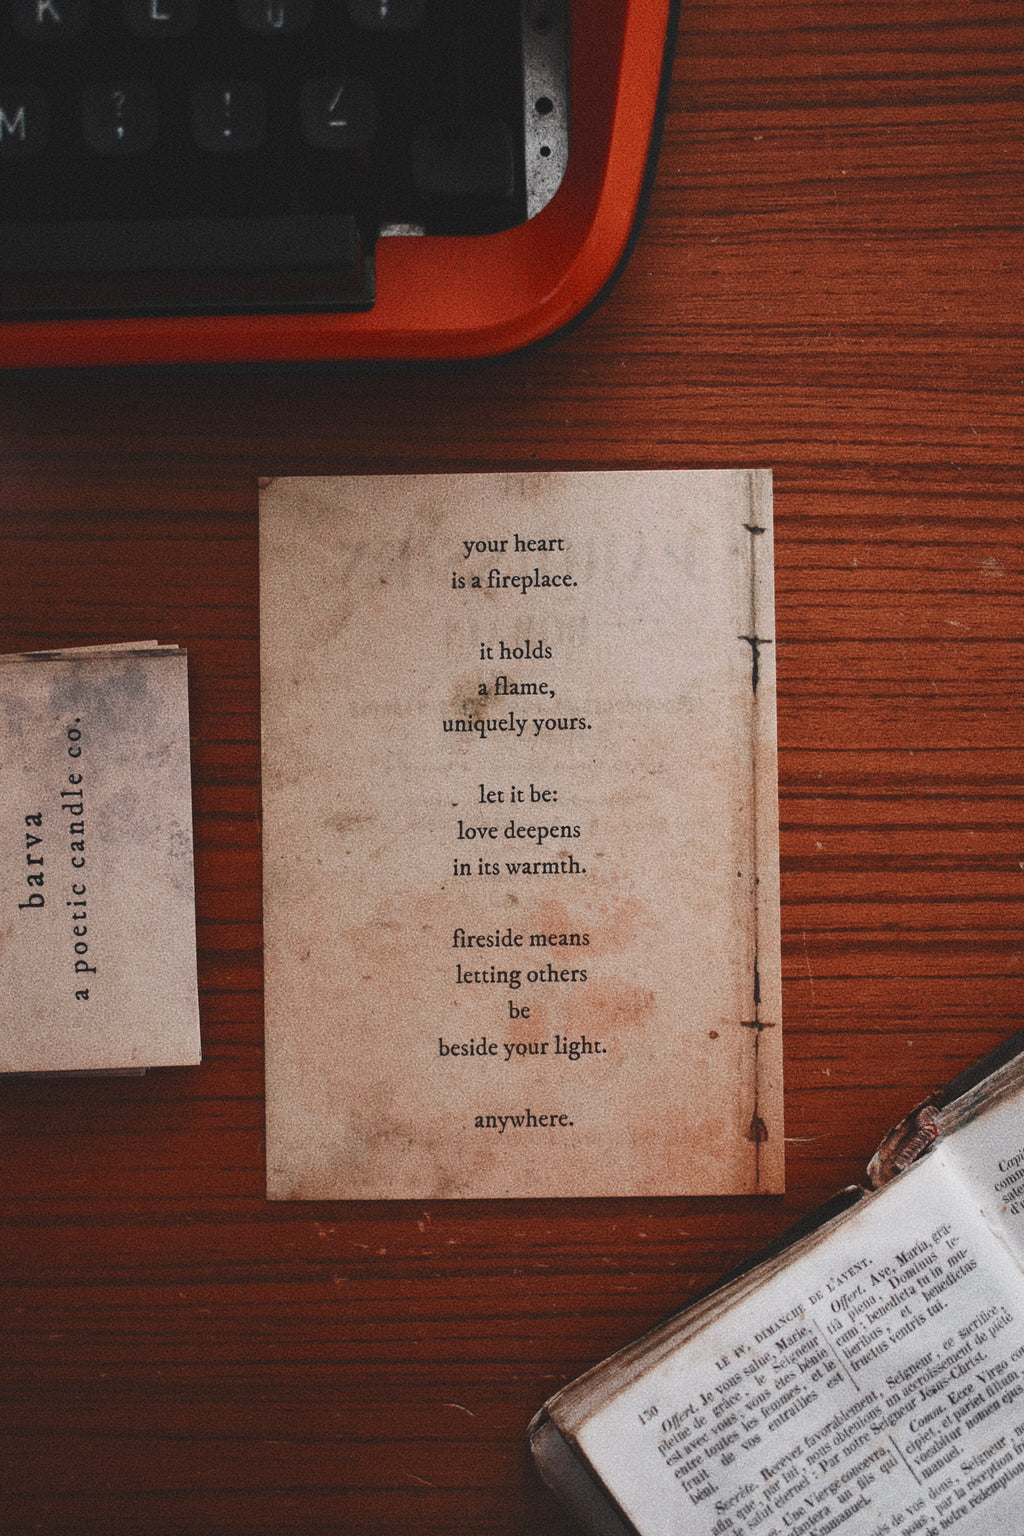 K L Ü ;
M ? , ! . / -
your heart
is a fireplace.
it holds
a flame,
uniquely yours.
let it be:
love deepens
in its warmth.
fireside means
letting others
be
beside your light.
anywhere.
barva
a poetic candle co.
150 LE IV. DIMANCHE DE L'AVENT.
Offert. Je vous salue, Marie,
pleine de grâce, le Seigneur
est avec vous, vous êtes bénie
entre toutes les femmes, et le
fruit de vos entrailles est
béni.
Offert. Ave, Maria, grâ-
tiâ plena, Dominus te-
cum; benedicta tu in mu-
lieribus, et benedictus
fructus ventris tui.
Secrète. Recevez favorablement, Seigneur, ce sacrifice,
afin que, par lui, nous obtenions un accroissement de piété
le salut éternel: Par notre Seigneur Jésus-Christ.
Une Vierge concevra,
fantera un fils qui
mmanuel.
Comm. Ecce Virgo con
cipiet, et pariet filium,
vocabitur nomen ejus
manuel.
de vos dons, Seigneur,
par la réception
notre rédemption